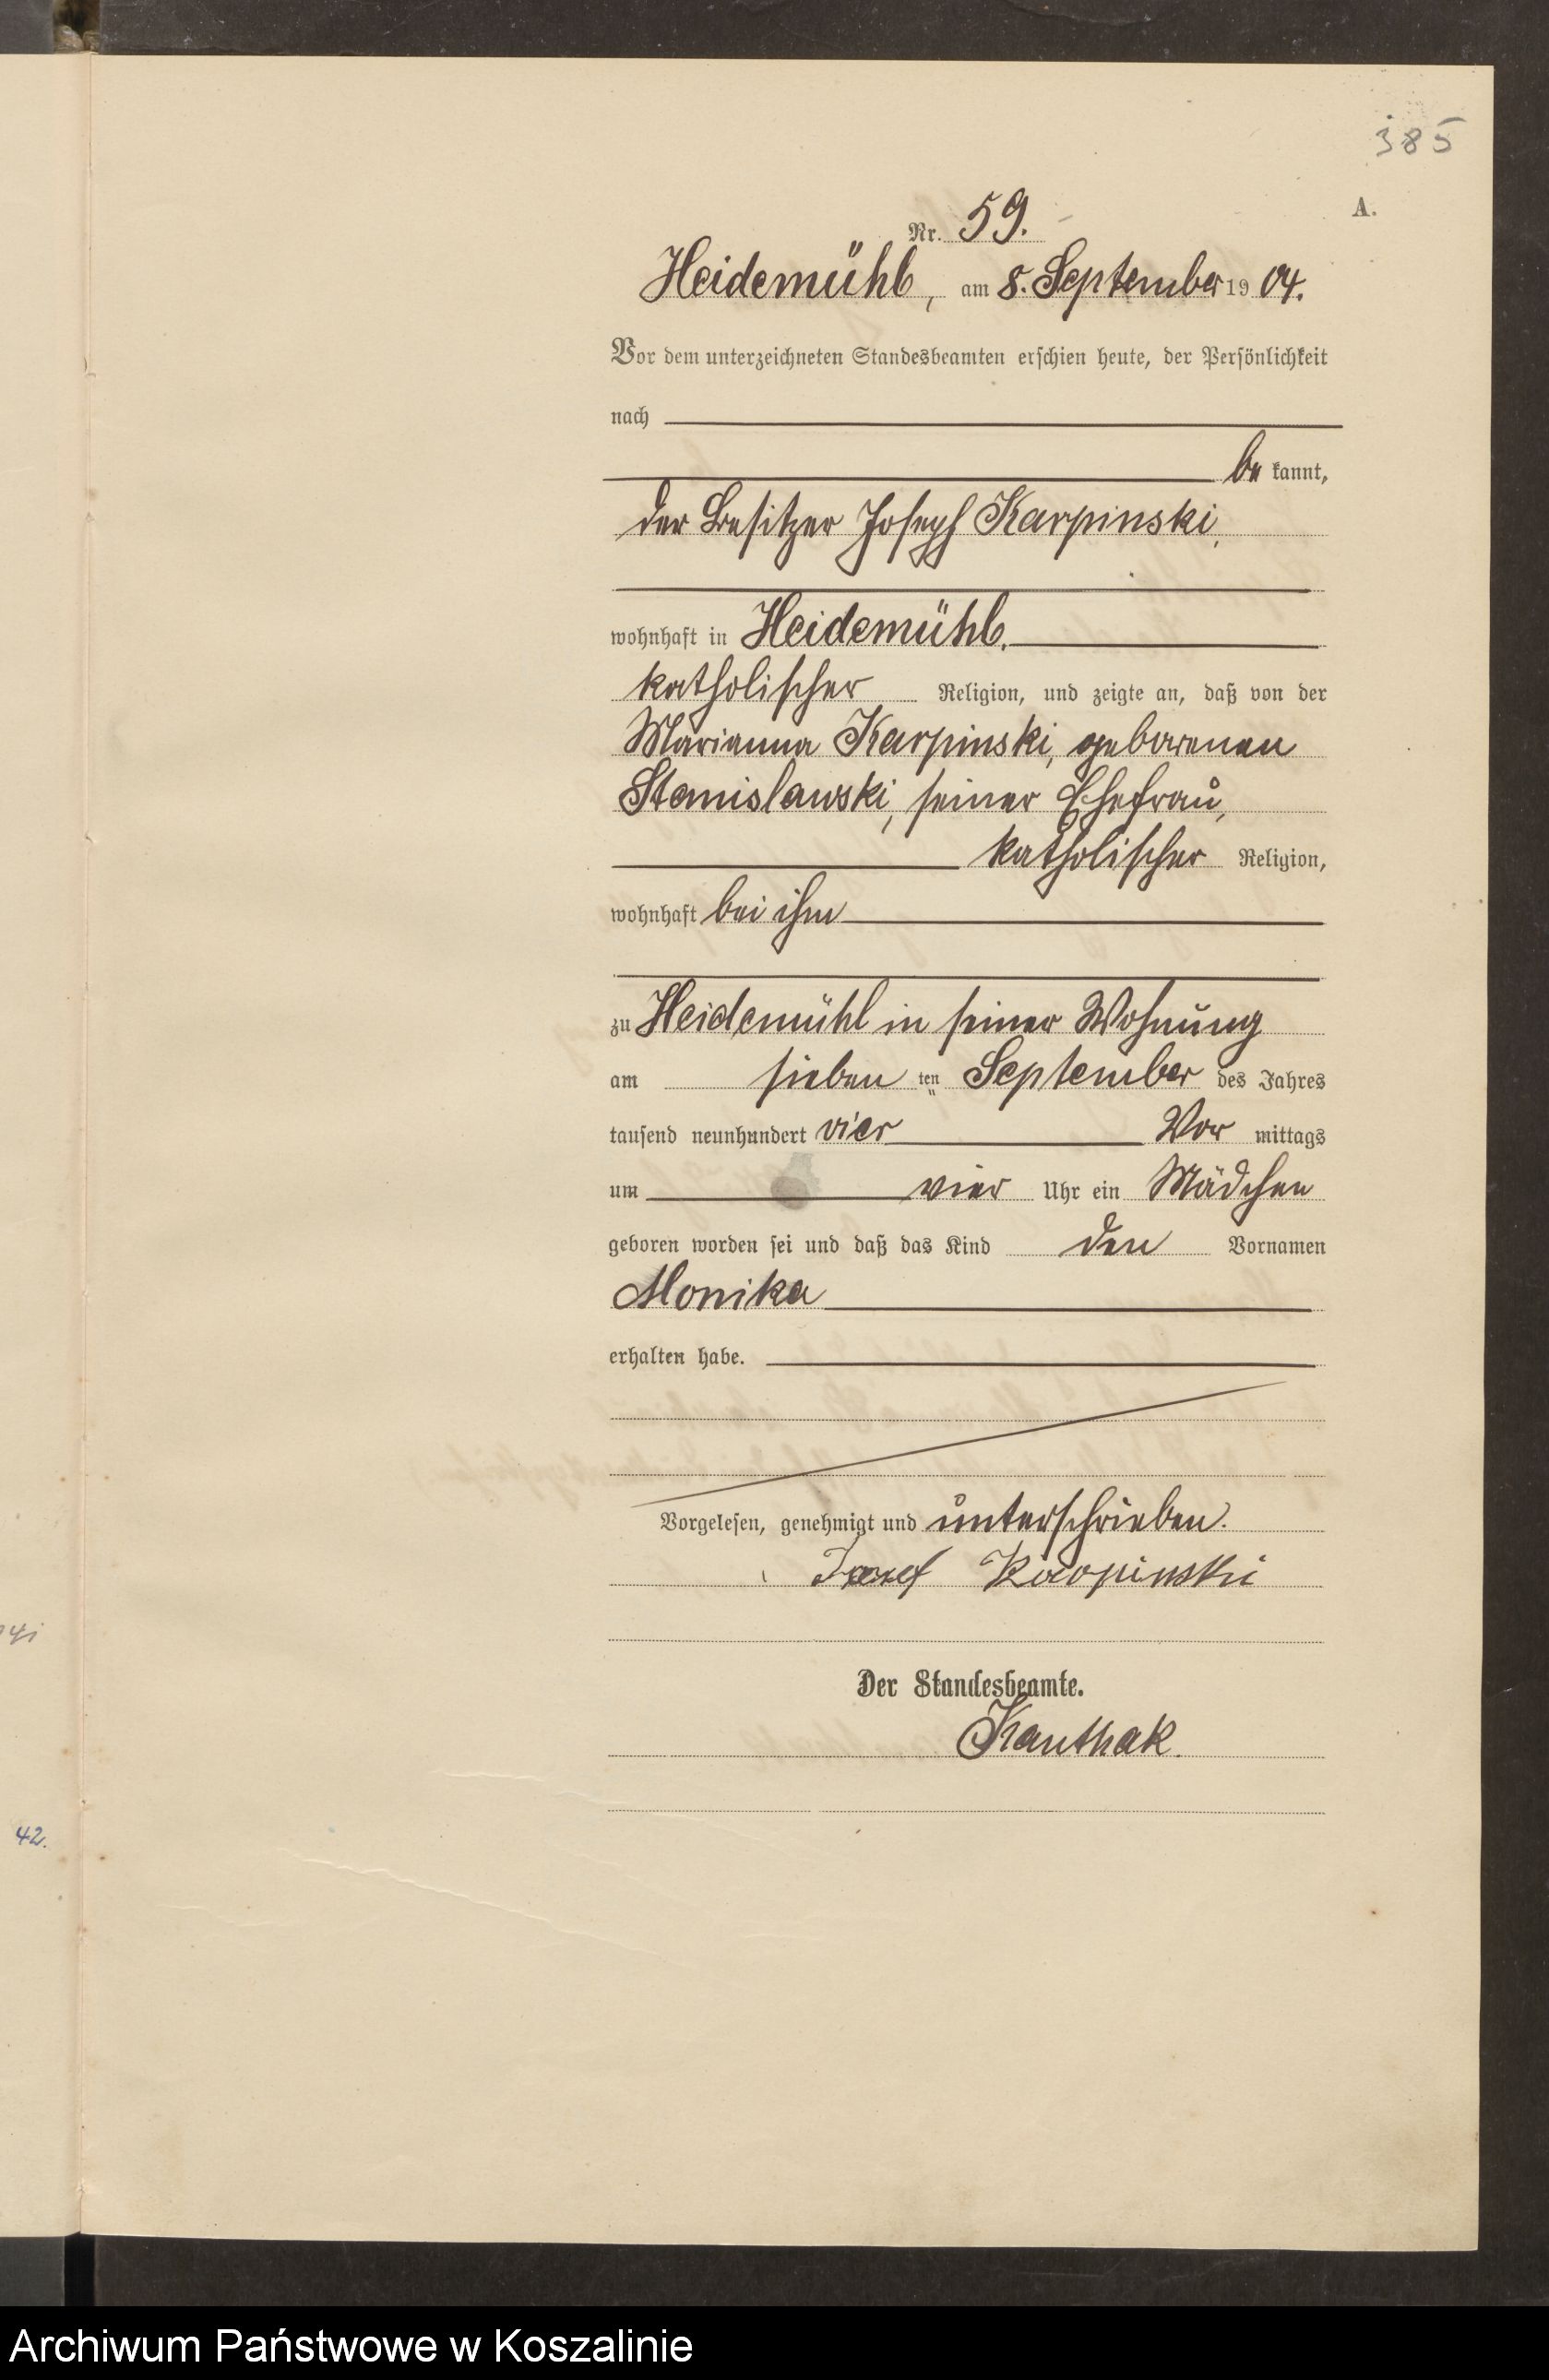 385
A.
Nr. 59.
Heidemühl, am 8. September 1904.
Vor dem unterzeichneten Standesbeamten erschien heute, der Persönlichkeit
nach
be kannt,
der Besitzer Joseph Karpinski,
wohnhaft in Heidemühl,
katholischer Religion, und zeigte an, daß von der
Marianna Karpinski, geborenen
Stanislawski, seiner Ehefrau,
katholischer Religion,
wohnhaft bei ihm
zu Heidemühl in seiner Wohnung
am sieben ten September des Jahres
tausend neunhundert vier Vor mittags
um vier Uhr ein Mädchen
geboren worden sei und daß das Kind den Vornamen
Monika
erhalten habe.
Vorgelesen, genehmigt und unterschrieben.
Josef Karpinski
Der Standesbeamte.
Kauthak.
42.
Archiwum Państwowe w Koszalinie